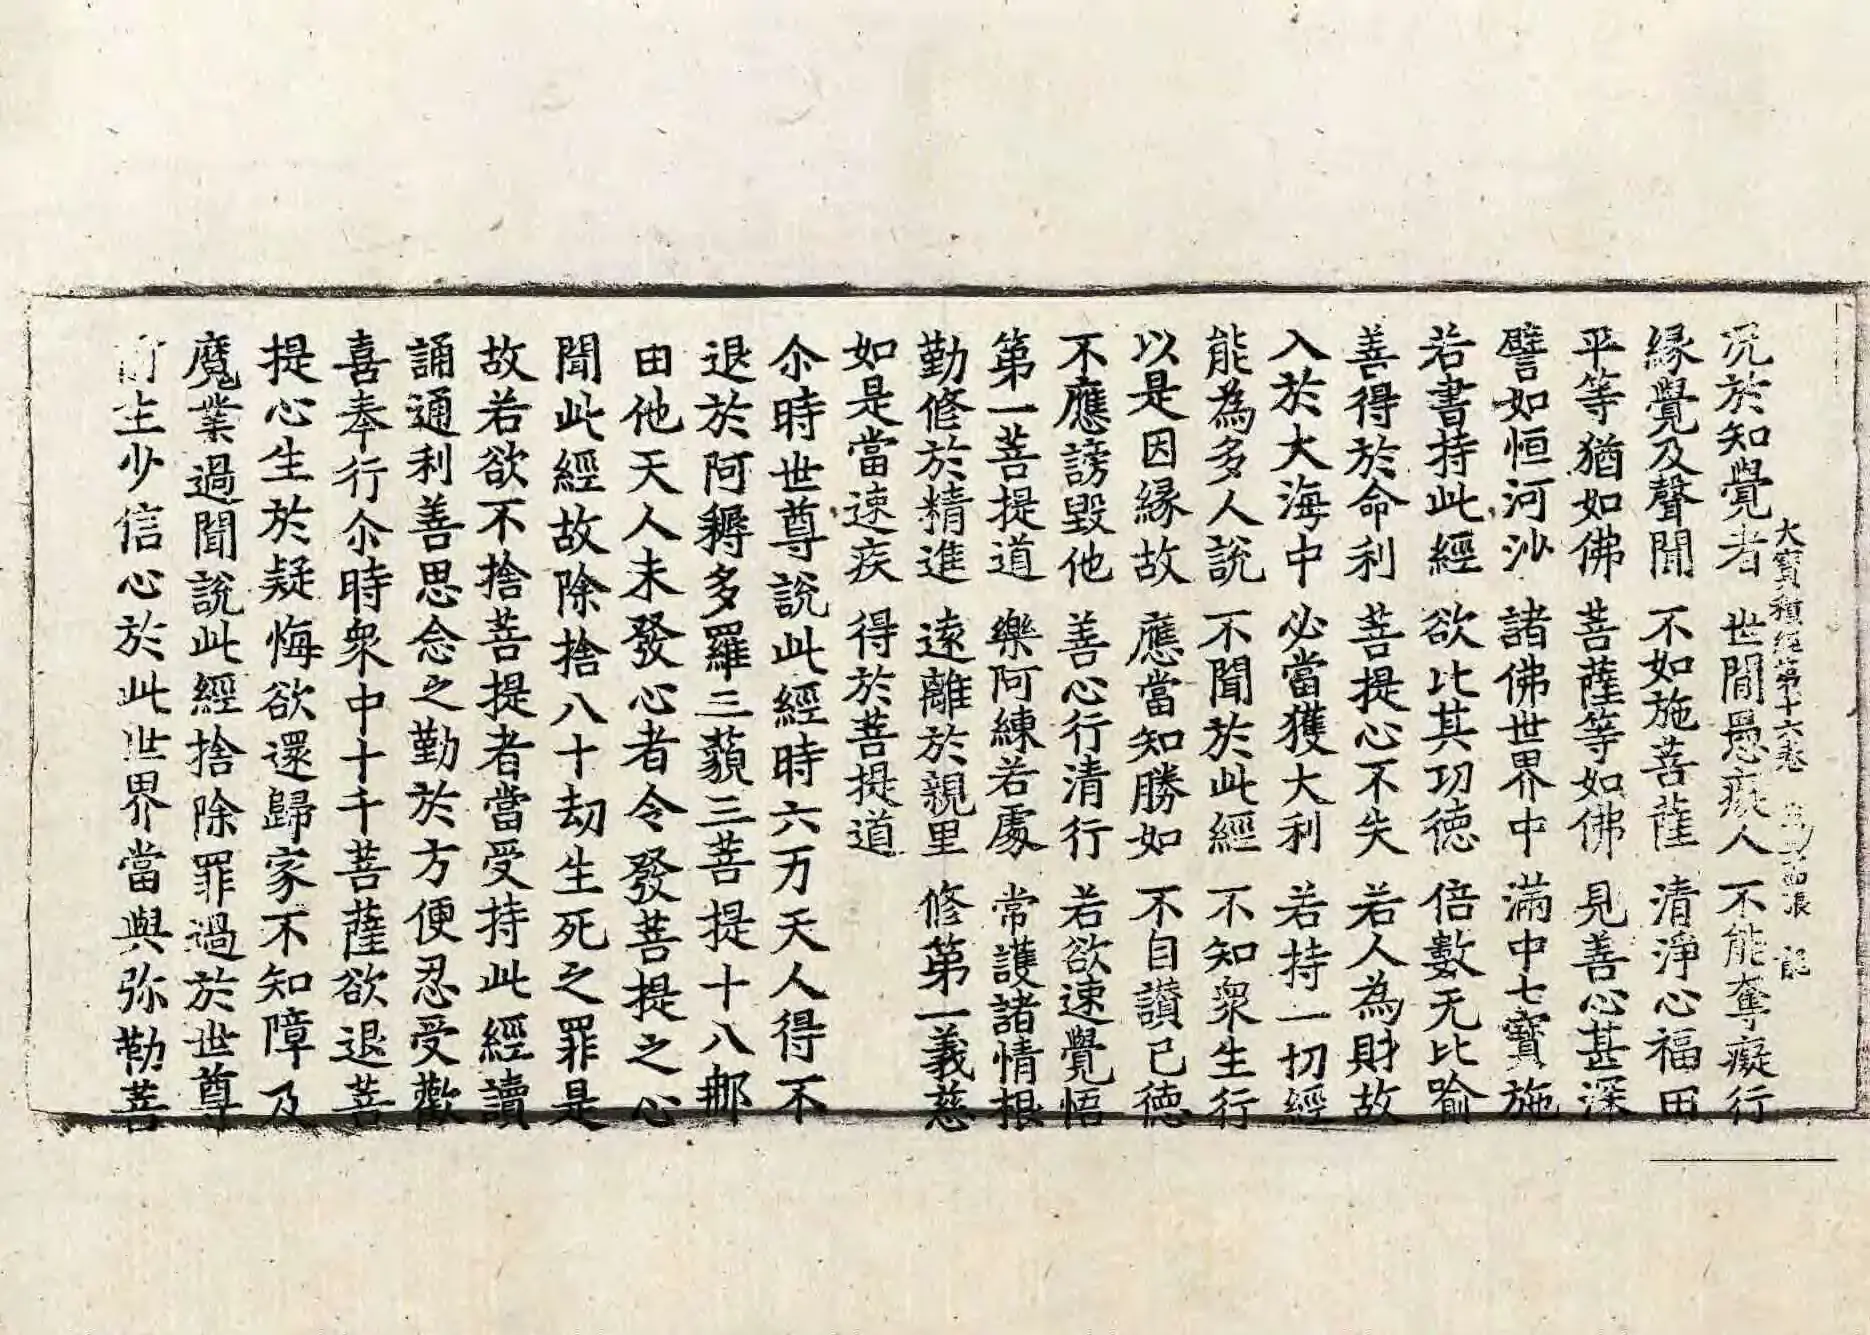 大寶積經第十六卷 張 龍
況於知覺者 世間愚癡人 不能奪癡行
緣覺及聲聞 不如施菩薩 清淨心福田
平等猶如佛 菩薩等如佛 見善心甚深
譬如恒河沙 諸佛世界中 滿中七寶施
若書持此經 欲比其功德 倍數无比喻
善得於命利 菩提心不失 若人為財故
入於大海中 必當獲大利 若持一切經
能為多人說 不聞於此經 不知衆生行
以是因緣故 應當知勝如 不自讃已德
不應謗毀他 善心行清行 若欲速覺悟
第一菩提道 樂阿練若處 常護諸情根
勤修於精進 遠離於親里 修第一義慈
如是當速疾 得於菩提道
尒時世尊說此經時六万天人得不
退於阿耨多羅三藐三菩提十八那
由他天人未發心者令發菩提之心
聞此經故除捨八十劫生死之罪是
故若欲不捨菩提者當受持此經讀
誦通利善思念之勤於方便忍受歡
喜奉行尒時衆中十千菩薩欲退菩
提心生於疑悔欲還歸家不知障及
魔業過聞說此經捨除罪過於世尊
前生少信心於此世界當與弥勒菩